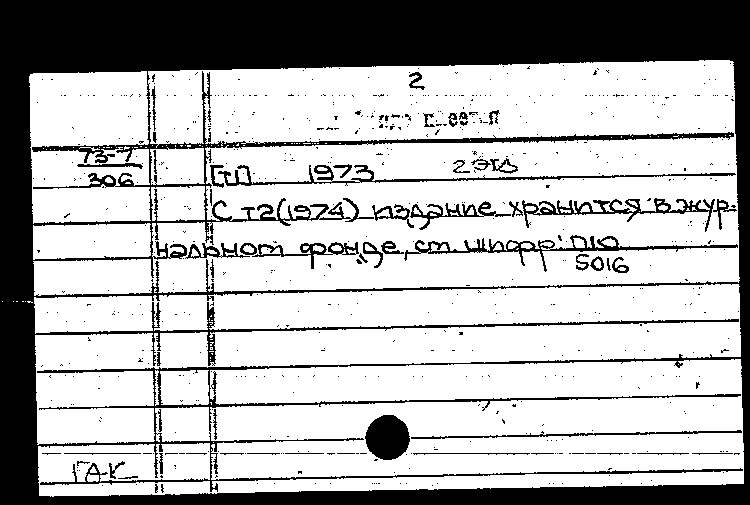 2
73-7
306
[т1] 1973 2 эта
С т2(1974) издание хранится в жур-
нальном фонде, ст. шифр: П10
5016
ГАК